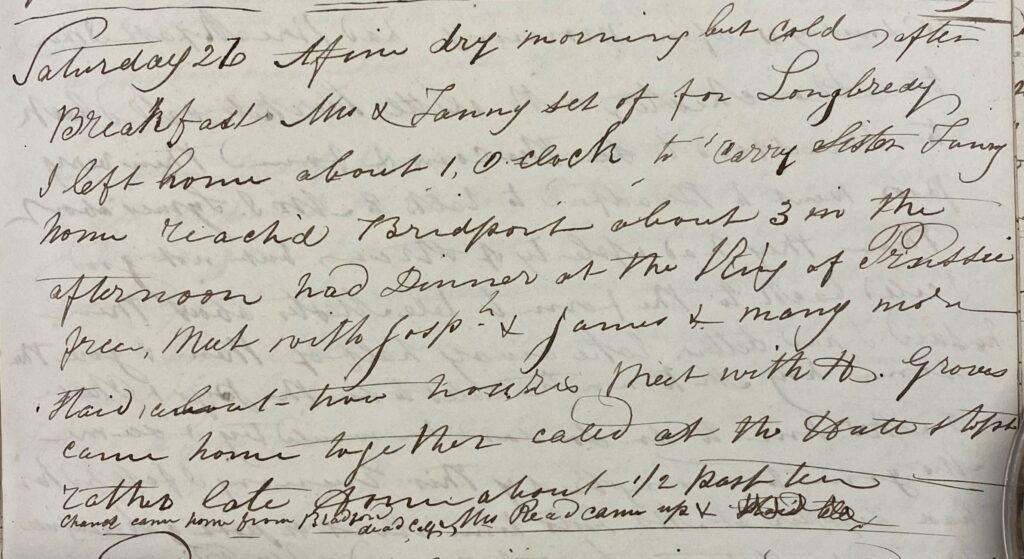 Saturday 26 A fine dry morning but cold, after
Breakfast Mrs & Fanny set of for Longbredy
I left home about 1, O clock to carry Sister Fanny
home reach'd Bridport about 3 in the
afternoon had Dinner at the King of Prussie
free, Meet with Josph & James & many more
Staid, about two hours Meet with H. Groves
came home together caled at the Hutt stopt
rather late home about 1/2 past ten
came home from Bladon
dead Calf, Mrs Read came up &